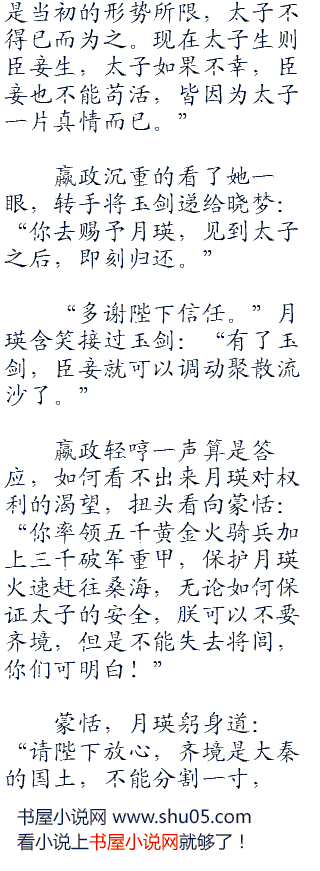 是当初的形势所限，太子不
得已而为之。现在太子生则
臣妾生，太子如果不幸，臣
妾也不能苟活，皆因为太子
一片真情而已。”
嬴政沉重的看了她一
眼，转手将玉剑递给晓梦：
“你去赐予月瑛，见到太子
之后，即刻归还。”
“多谢陛下信任。”月
瑛含笑接过玉剑：“有了玉
剑，臣妾就可以调动聚散流
沙了。”
嬴政轻哼一声算是答
应，如何看不出来月瑛对权
利的渴望，扭头看向蒙恬：
“你率领五千黄金火骑兵加
上三千破军重甲，保护月瑛
火速赶往桑海，无论如何保
证太子的安全，朕可以不要
齐境，但是不能失去将闾，
你们可明白！”
蒙恬，月瑛躬身道：
“请陛下放心，齐境是大秦
的国土，不能分割一寸，
书屋小说网 www.shu05.com
看小说上书屋小说网就够了！